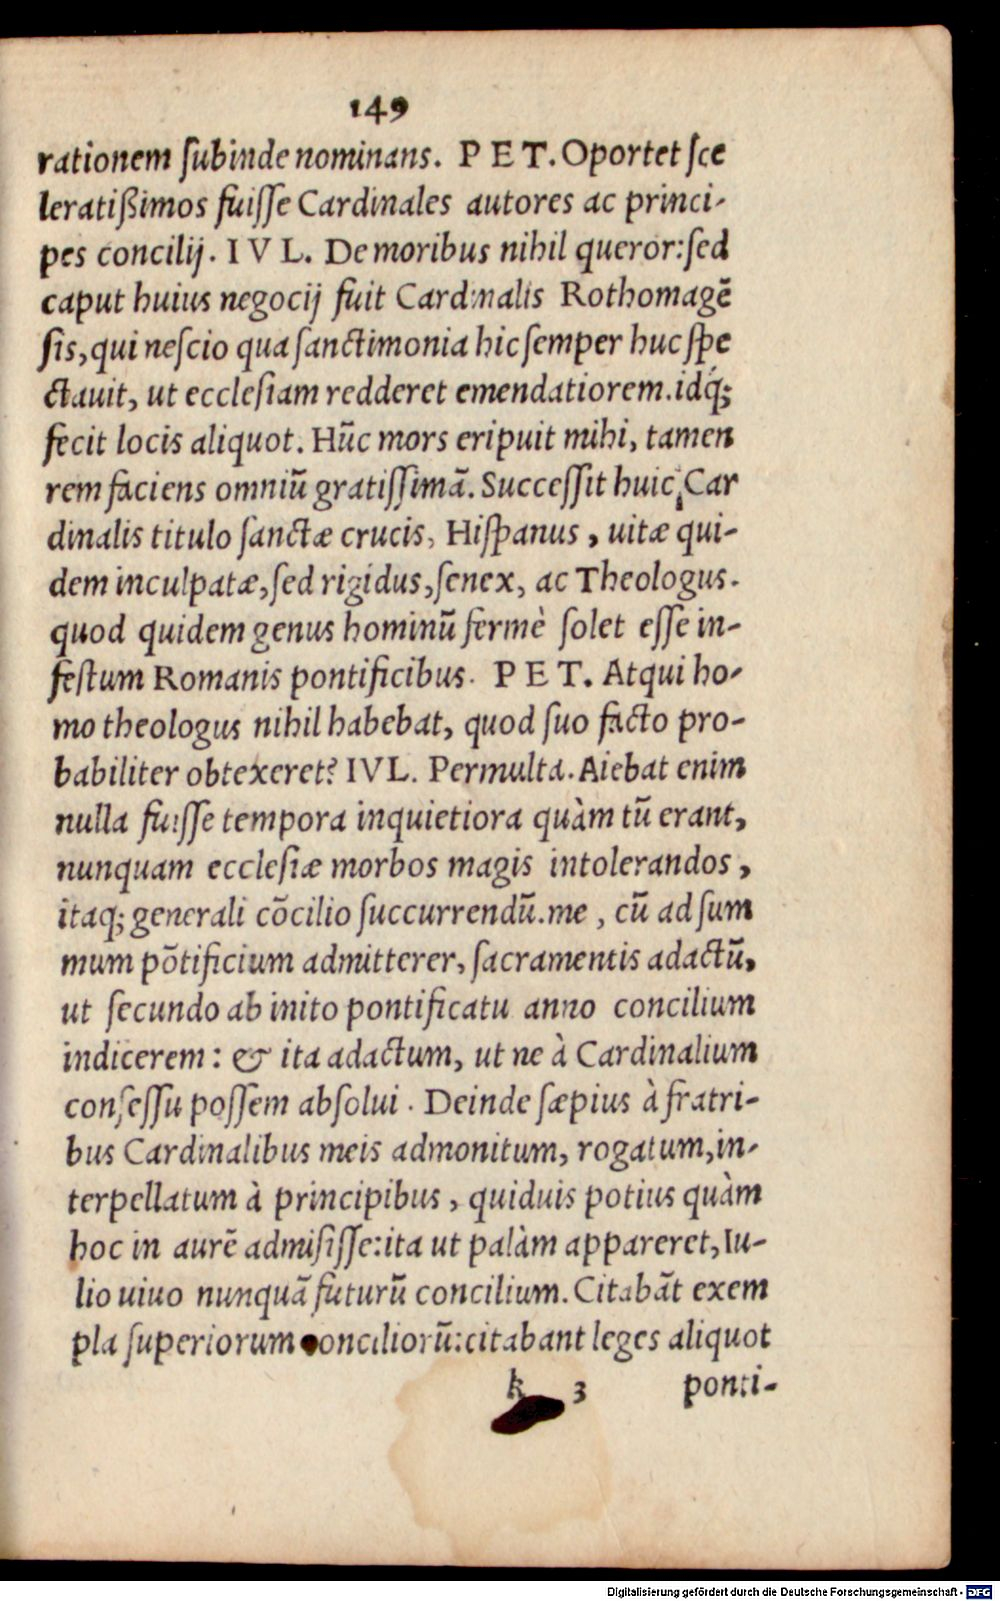 149
rationem ſubinde nominans. P E T. Oportet ſce
leratißimos fuiſſe Cardinales autores ac princi-
pes concilij. I V L. De moribus nihil queror: ſed
caput huius negocij fuit Cardinalis Rothomagē
ſis, qui neſcio qua ſanctimonia hic ſemper huc ſpe
ctauit, ut eccleſiam redderet emendatiorem. idq́;
fecit locis aliquot. Hūc mors eripuit mihi, tamen
rem faciens omniū gratiſſimā. Succeſſit huic Car
dinalis titulo ſanctæ crucis, Hiſpanus, uitæ qui-
dem inculpatæ, ſed rigidus, ſenex, ac Theologus.
quod quidem genus hominū fermè ſolet eſſe in-
feſtum Romanis pontificibus. P E T. Atqui ho-
mo theologus nihil habebat, quod ſuo facto pro-
babiliter obtexeret? IVL. Permulta. Aiebat enim
nulla fuiſſe tempora inquietiora quàm tū erant,
nunquam eccleſiæ morbos magis intolerandos,
itaq; generali cōcilio ſuccurrendū. me, cū ad ſum
mum pōtificium admitterer, ſacramentis adactū,
ut ſecundo ab inito pontificatu anno concilium
indicerem: & ita adactum, ut ne à Cardinalium
conſeſſu poſſem abſolui. Deinde ſæpius à fratri-
bus Cardinalibus meis admonitum, rogatum, in-
terpellatum à principibus, quiduis potius quàm
hoc in aurē admiſiſſe: ita ut palàm appareret, Iu-
lio uiuo nunquā futurū concilium. Citabāt exem
pla ſuperiorum conciliorū: citabant leges aliquot
k 3 ponti-
Digitalisierung gefördert durch die Deutsche Forschungsgemeinschaft - DFG